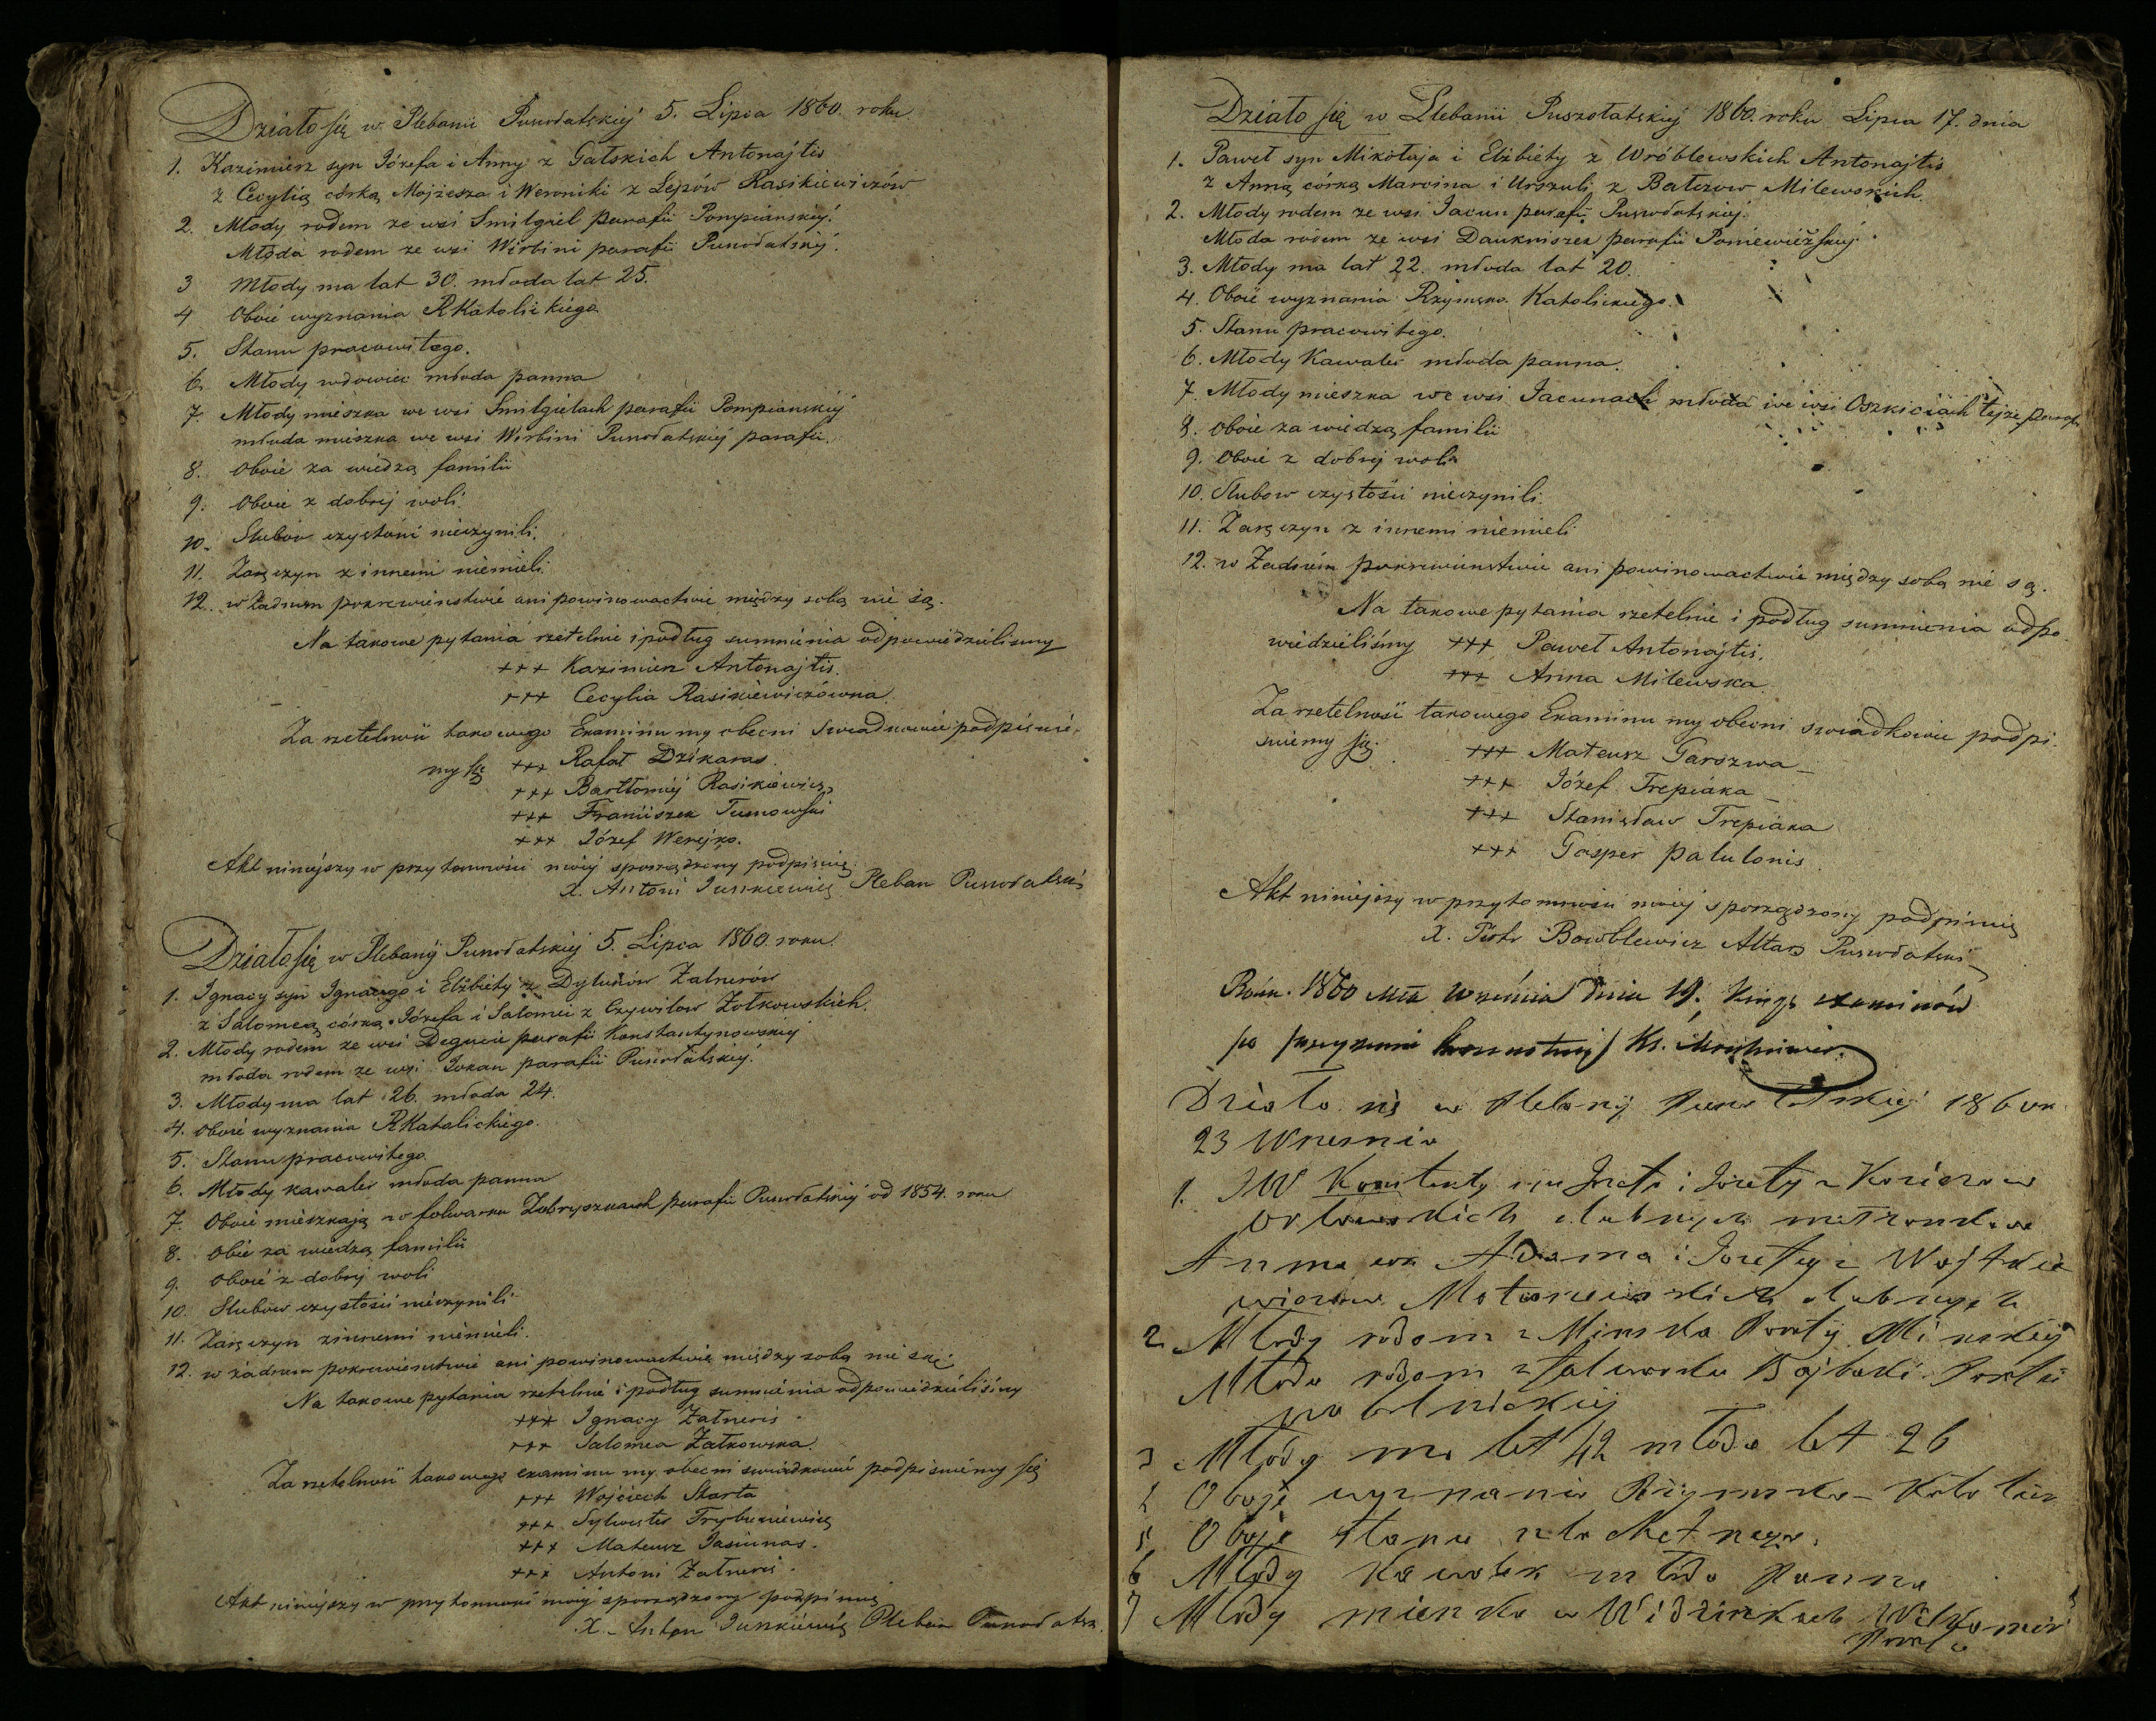 Działo się w Plebanii Puszołatskiej 5. Lipca 1860. roku
1. Kazimierz syn Józefa i Anny z Gatskich Antonajtis
z Cecylią córką Mojżesza i Weroniki z Lepów Rasikiewiczów
2. Młody rodem ze wsi Smilgiel parafii Pompianskiej.
Młoda rodem ze wsi Wirbini parafii Puszołatskiej.
3 Młody ma lat 30. młoda lat 25.
4 Oboie wyznania RKatolickiego
5. Stanu pracowitego.
6. Młody wdowiec młoda panna
7. Młody mieszka we wsi Smilgielach parafii Pompianskiej
młoda mieszka we wsi Wirbini Puszołatskiej parafii.
8. Oboie za wiedzą familii
9. Oboie z dobrej woli.
10. Slubow czystości nieczynili.
11. Zaręczyn z innemi niemieli.
12. w żadnem pokrewieństwie ani powinowactwie między sobą nie są.
Na takowe pytania rzetelnie i podług sumnienia odpowiedzielismy
+++ Kazimierz Antonajtis.
+++ Cecylia Rasikiewiczówna.
Za rzetelność takowego Examinu my obecni swiadkowie podpisuie-
my się +++ Rafał Dzikaras.
+++ Bartłomiej Rasikiewicz
+++ Franciszek Tumowski
+++ Józef Werejko.
Akt niniejszy w przytomności moiej sporządzony podpisuię
X. Antoni Juszkiewicz Pleban Puszołatski
Działo się w Plebanij Puszołatskiej 5. Lipca 1860. roku.
1. Ignacy syn Ignacego i Elżbiety z Dylunów Zatnerów
z Salomeą córką Józefa i Salomei z Czywilow Żołkowskich.
2. Młody rodem ze wsi Degucie parafii Konstantynowskiej
młoda rodem ze wsi Jokan parafii Puszołatskiej.
3. Młody ma lat 26. młoda 24.
4. oboie wyznania RKatolickiego.
5. Stanu pracowitego
6. Młody kawaler młoda panna
7. Oboie mieszkają w folwarku Zabryszkach parafii Puszołatskiej od 1854. roku
8. Obie za wiedzą familii
9. Oboie z dobrej woli
10. Slubow czystości nieczynili
11. Zaręczyn zinnemi niemieli.
12. w żadnem pokrewieństwie ani powinowactwie między sobą nie są.
Na takowe pytania rzetelnie i podług sumnienia odpowiedzieliśmy
+++ Ignacy Zatneris.
+++ Salomea Żałkowska.
Za rzetelność takowego examinu my obecni swiadkowie podpisuiemy się
+++ Wojciech Skarta
+++ Sylwester Trybuniewicz
+++ Mateusz Jasiunas.
+++ Antoni Zatneris.
Akt niniejszy w przytomności moiej sporządzony podpisuię
X. Anton Juszkiewicz Pleban Puszołatsk.
Działo się w Plebanii Puszołatskiej 1860. roku Lipca 17. dnia
1. Paweł syn Mikołaja i Elżbiety z Wróblewskich Antonajtis
z Anną córką Marcina i Urszuli z Bałzow Milewskich.
2. Młody rodem ze wsi Jacun parafii Puszołatskiej.
Młoda rodem ze wsi Daukniszek parafii Poniewiéżskiej.
3. Młody ma lat 22. młoda lat 20.
4. Oboie wyznania Rzymsko. Katolickiego.
5. Stanu pracowitego.
6. Młody Kawaler młoda panna.
7. Młody mieszka we wsi Jacunach młoda we wsi Oszkiciach tejże parafii
8. oboie za wiedzą familii
9. Oboie z dobrej woli
10. Slubow czystości nieczynili
11. Zaręczyn z innemi niemieli
12. w Żadnem pokrewieństwie ani powinowactwie między sobą nie są.
Na takowe pytania rzetelnie i podług sumnienia odpo-
wiedzieliśmy +++ Paweł Antonajtis.
+++ Anna Milewska.
Za rzetelność takowego Examinu my obecni swiadkowie podpi-
suiemy się. +++ Mateusz Garszwa
+++ Józef Trepiáka
+++ Stanisław Trepiáka
+++ Gasper Palulonis
Akt niniejszy w przytomności moiej sporządzony podpisuię
X. Piotr Bowblewicz Altar. Puszołatski
Roku. 1860 Września dnia 19. Xięgę examinów
Ks.
Działo się w Plebanij Puszołatskiej 1860 r.
23 Wrzesnia
1. JW Konstanty syn Józefa i Józefy z Kozierow
Orłowskich slubnych małżonków
Anna cór. Adama i Józefy z Wojtkie
wiczow slubnych
2. Młody rodem z Minska Parafij Minskiej
Młoda rodem z folwarku Bajboki Parafii
3 Młody ma lat 42 młoda lat 26
4 Oboje wyznania Rzymsko-Katolic
5 Oboje stanu szlachetnego.
6 Młody Kawaler młoda Panna
7 Młody mieszka w Widziszkach Wiłkomir
Parafii